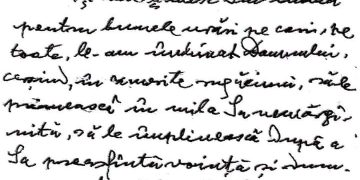 pentru bunele urări pe cari, pe
toate, le-am închinat Domnului,
cerând, în smerite rugăciuni, să le
primească în mila Sa nemărgi-
nită, să le împlinească după a
Sa preasfântă voință și dum-